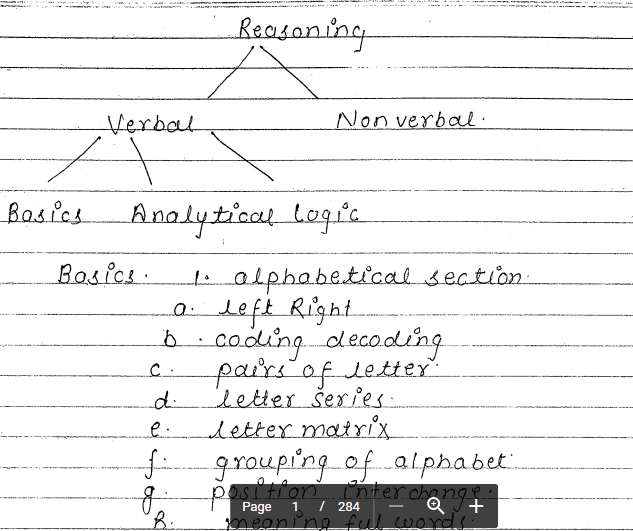 Reasoning
Verbal Non verbal.
Basics Analytical Logic
Basics. 1. alphabetical section.
a. left Right
b. coding decoding
c. pairs of letter.
d. letter series.
e. letter matrix
f. grouping of alphabet
g. position interchange.
Page 1 / 284
h. meaning ful words.